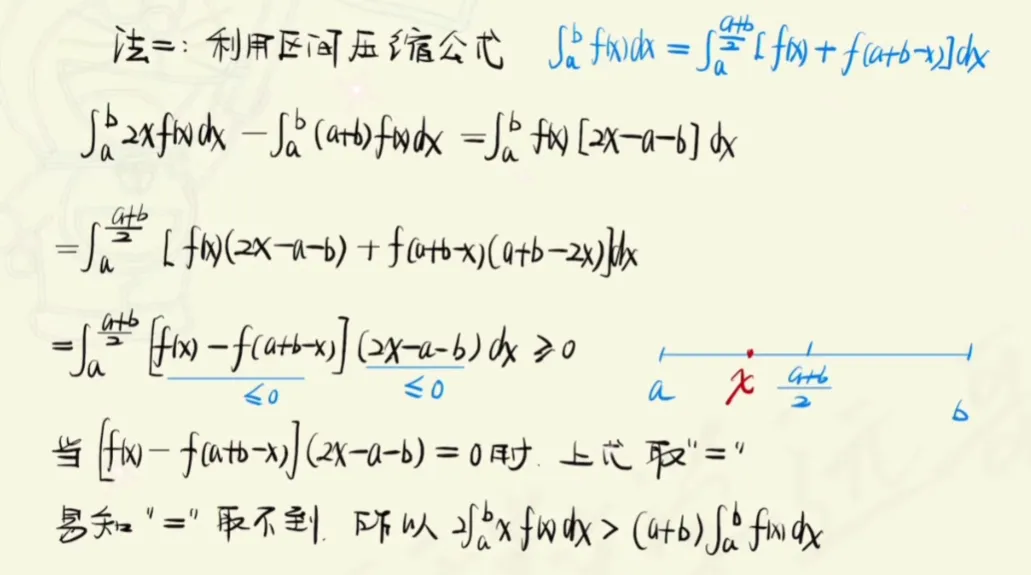 法二：利用区间压缩公式 ∫_a^b f(x)dx = ∫_a^{(a+b)/2} [f(x) + f(a+b-x)]dx
∫_a^b 2xf(x)dx - ∫_a^b (a+b)f(x)dx = ∫_a^b f(x)[2x-a-b]dx
= ∫_a^{(a+b)/2} [f(x)(2x-a-b) + f(a+b-x)(a+b-2x)]dx
= ∫_a^{(a+b)/2} [f(x) - f(a+b-x)](2x-a-b)dx ≥ 0
≤0 ≤0
a x (a+b)/2 b
当[f(x) - f(a+b-x)](2x-a-b) = 0时. 上式取"="
易知"="取不到. 所以 2∫_a^b xf(x)dx > (a+b)∫_a^b f(x)dx